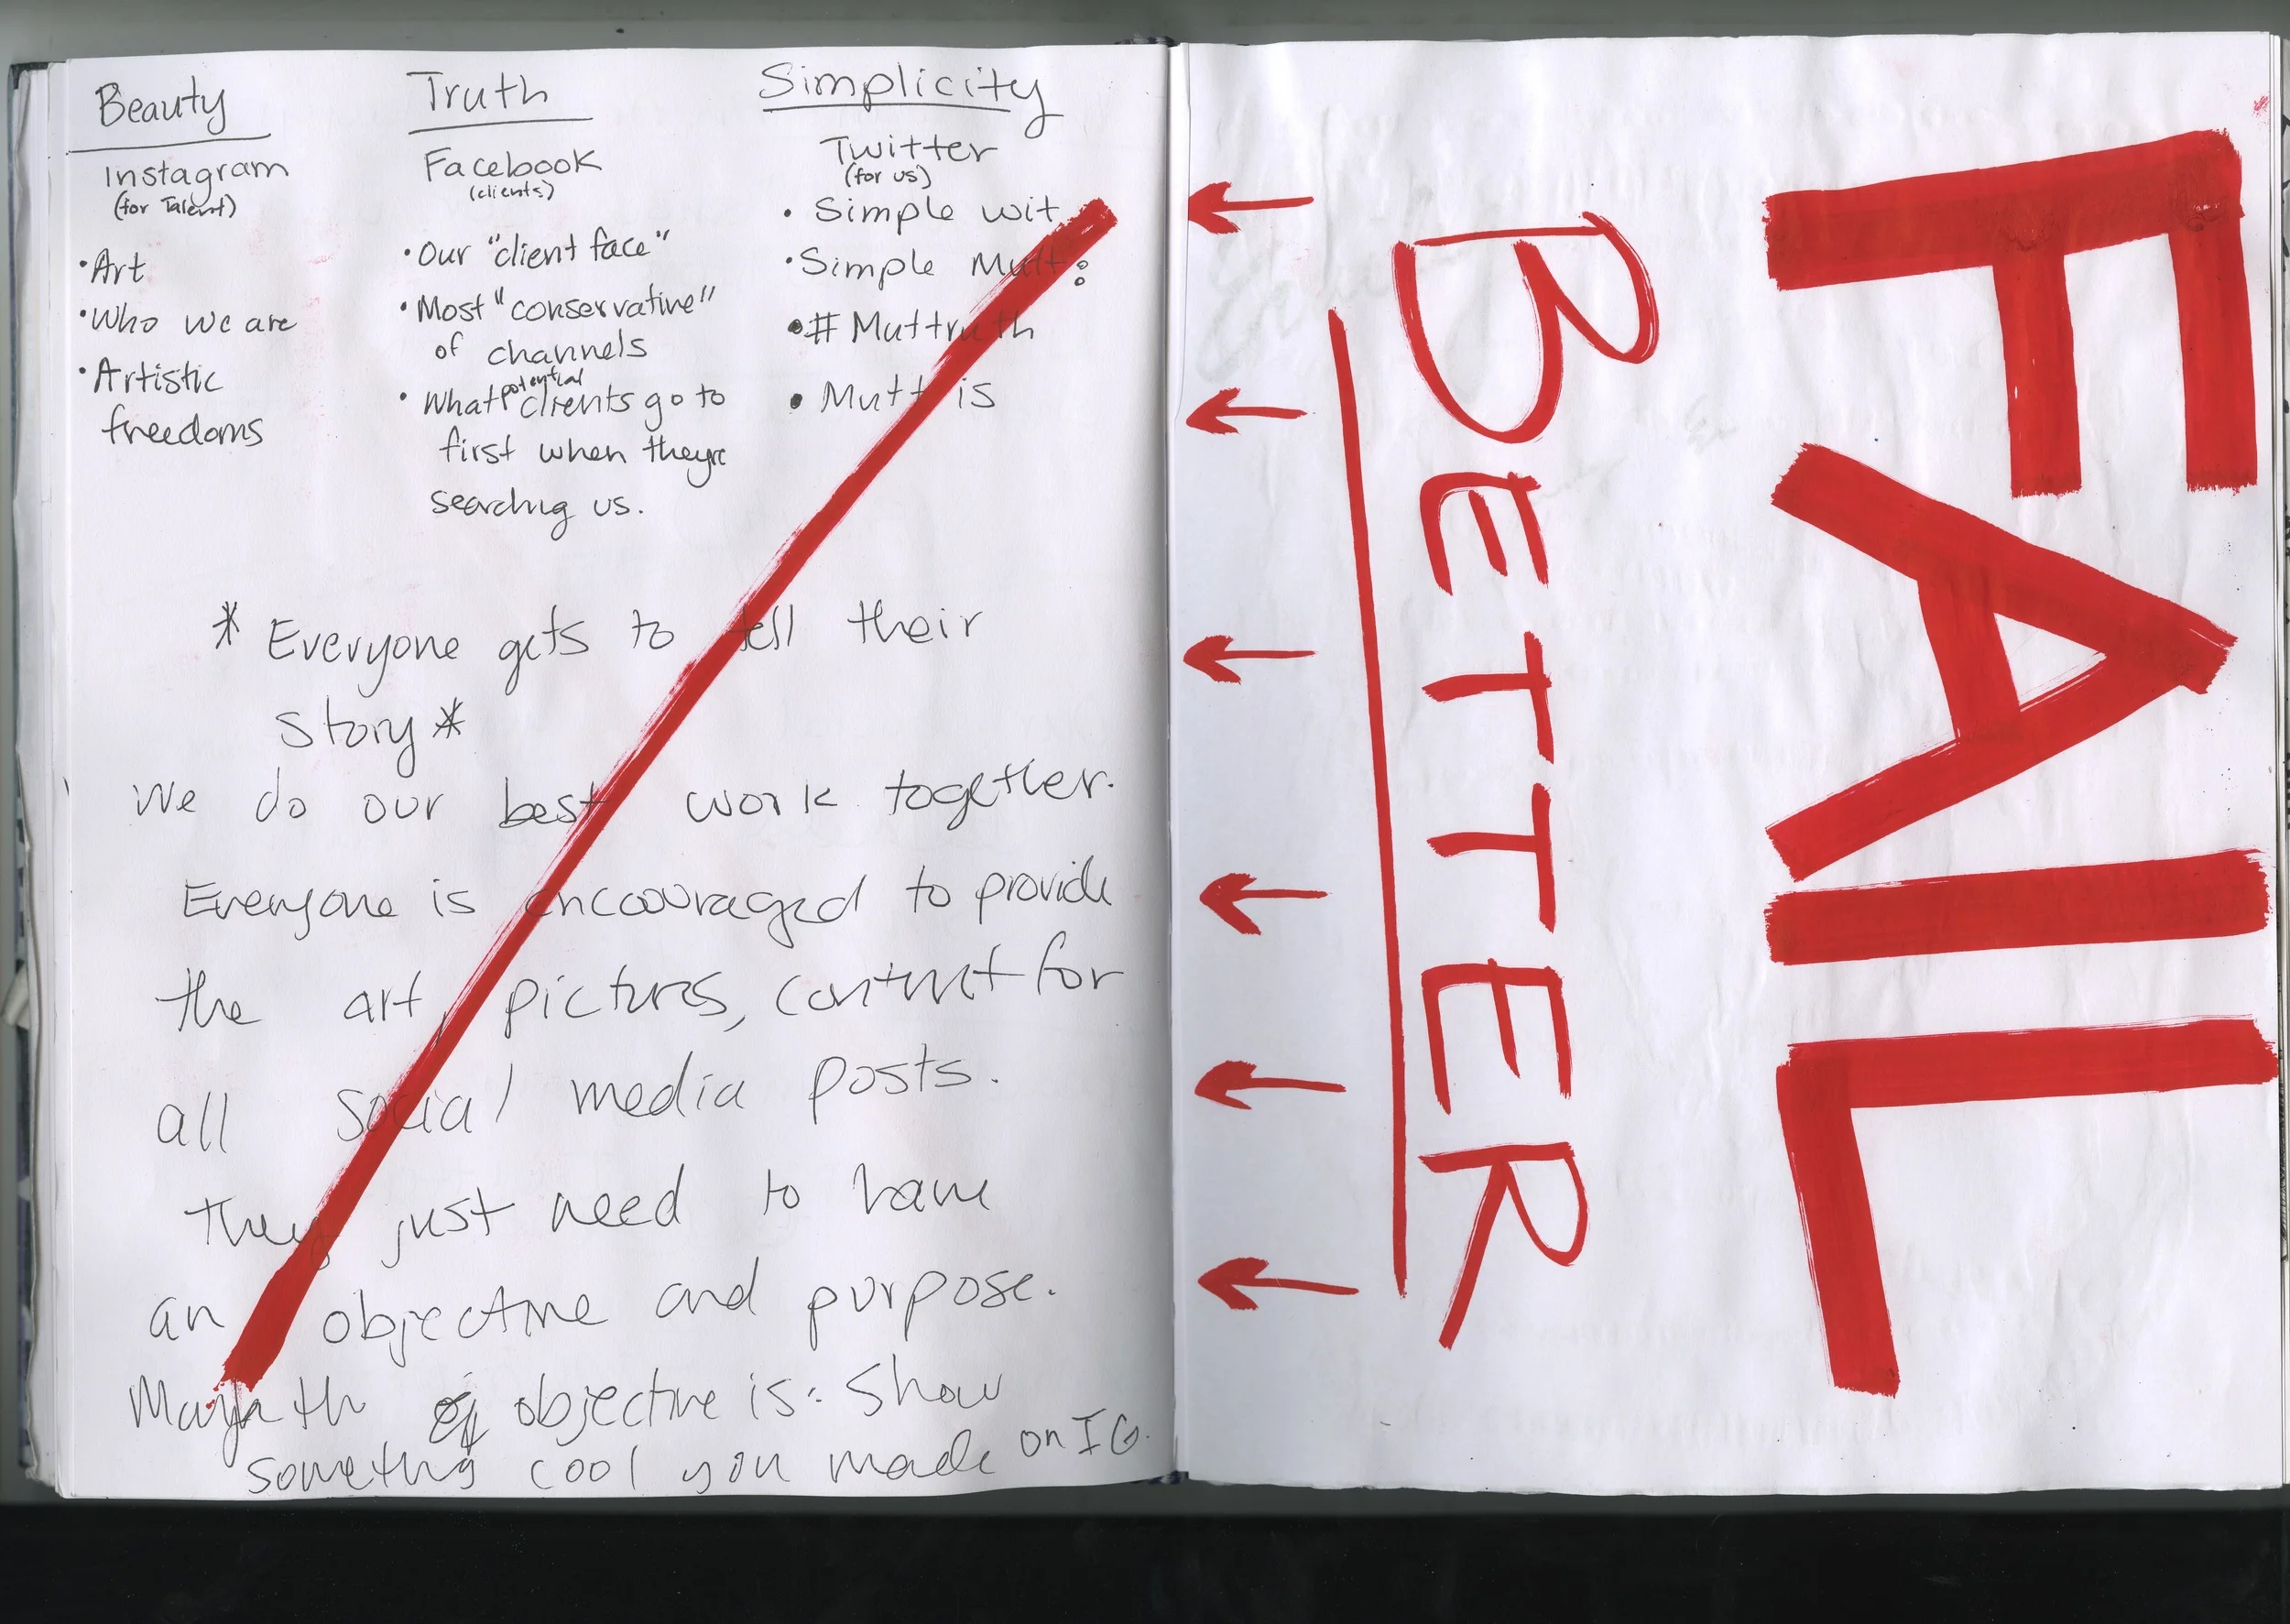 Beauty
Instagram
(for Talent)
• Art
• Who we are
• Artistic
freedoms
Truth
Facebook
(clients)
• Our "client face"
• Most "conservative"
of channels
• What potential clients go to
first when theyre
searching us.
Simplicity
Twitter
(for us)
• Simple wit
• Simple Mutt:
• # Muttruth
• Mutt is
* Everyone gets to tell their
story *
We do our best work together.
Everyone is encouraged to provide
the art, pictures, content for
all social media posts.
They just need to have
an objective and purpose.
objective is: Show
something cool you made on IG.
FAIL
BETTER